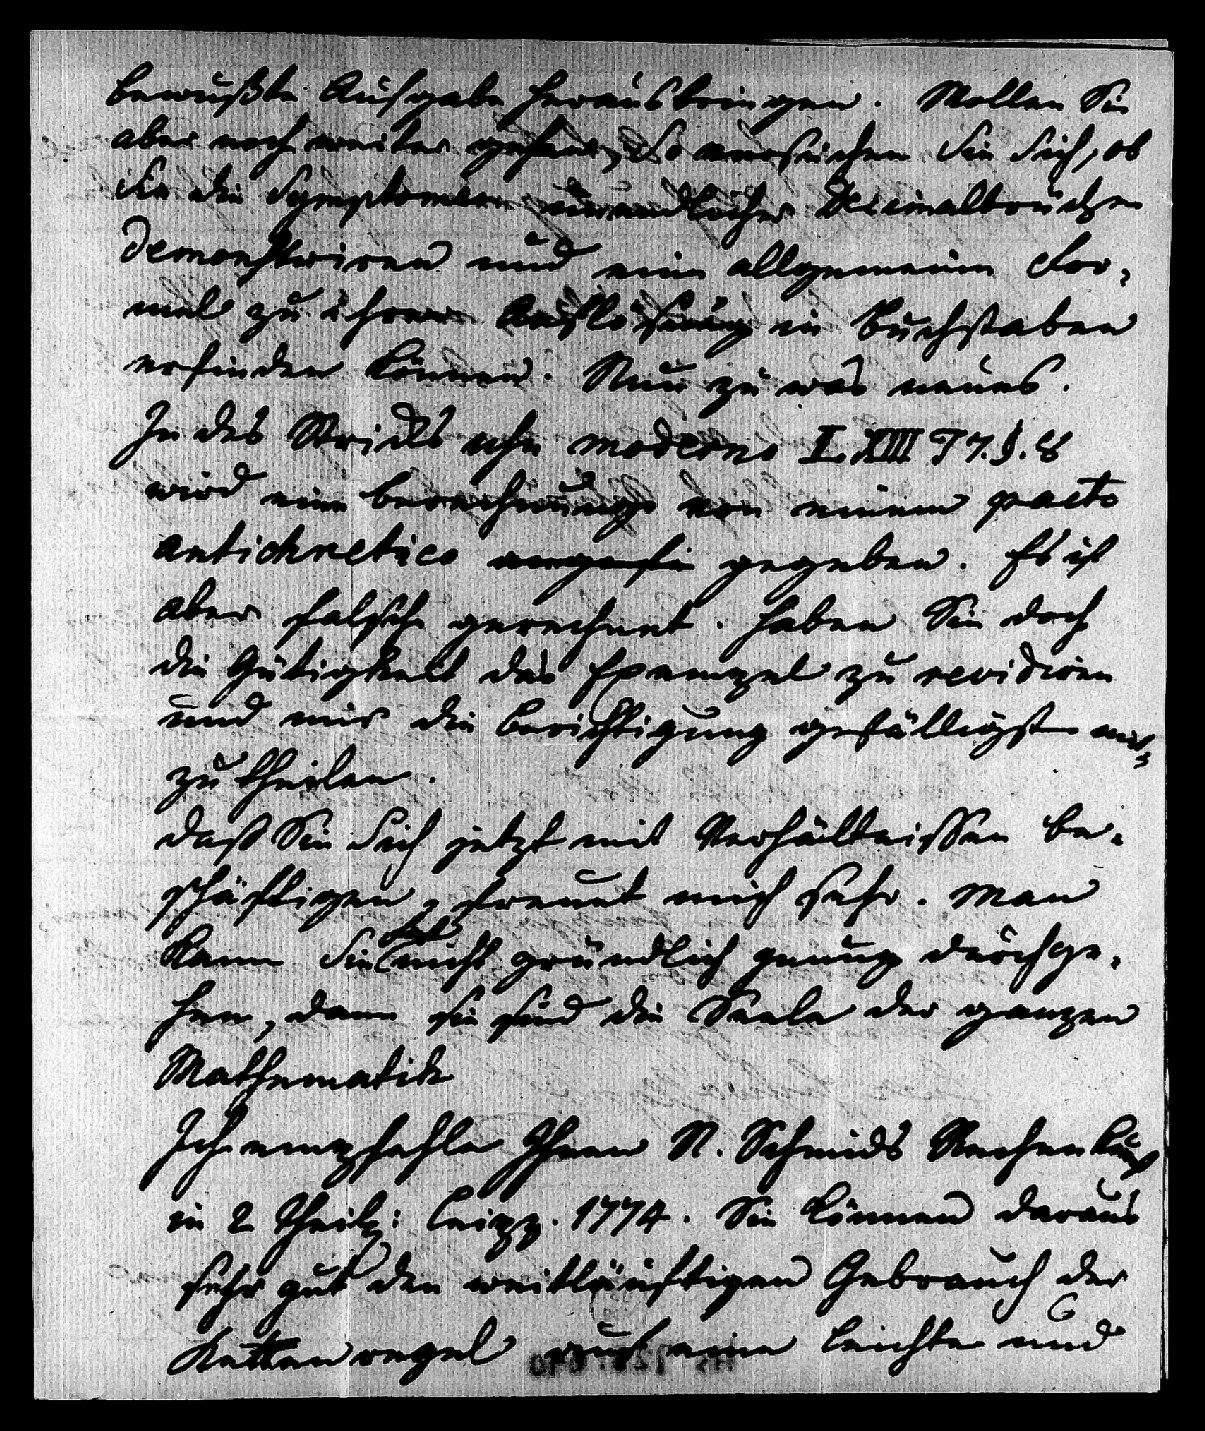 bewußte Aufgabe herausbringen. Wollen Sie
aber noch weiter gehen, so versuchen Sie Sich, ob
Sie die Symptomen unendlicher Decimalbrüche
demonstriren und eine allgemeine For-
mel zu ihrer Auflösung in Buchstaben
erfinden können. Nun zu was neues.
In des Stricks usu moderno L XIII T 7. §. 8
wird eine berechnung von einem pacto
antichretico gegeben. Es ist
aber falsch gerechnet. Haben Sie doch
die Gütigkeit das Exempel zu revidiren
und mir die berichtigung gefälligst mit-
zutheilen.
daß Sie Sich jetzt mit Verhältnissen be-
schäftigen, freuet mich sehr. Man
kann Sie fast nicht gründlich genug durchge-
hen, dann sie sind die Seele der ganzen
Mathematik
Ich empfehle Ihnen N. Schmids Rechenkunst
in 2 Theil: Leipz. 1774. Sie können daraus
sehr gut den weitläuftigen Gebrauch der
Kettenregel auf eine leichte und